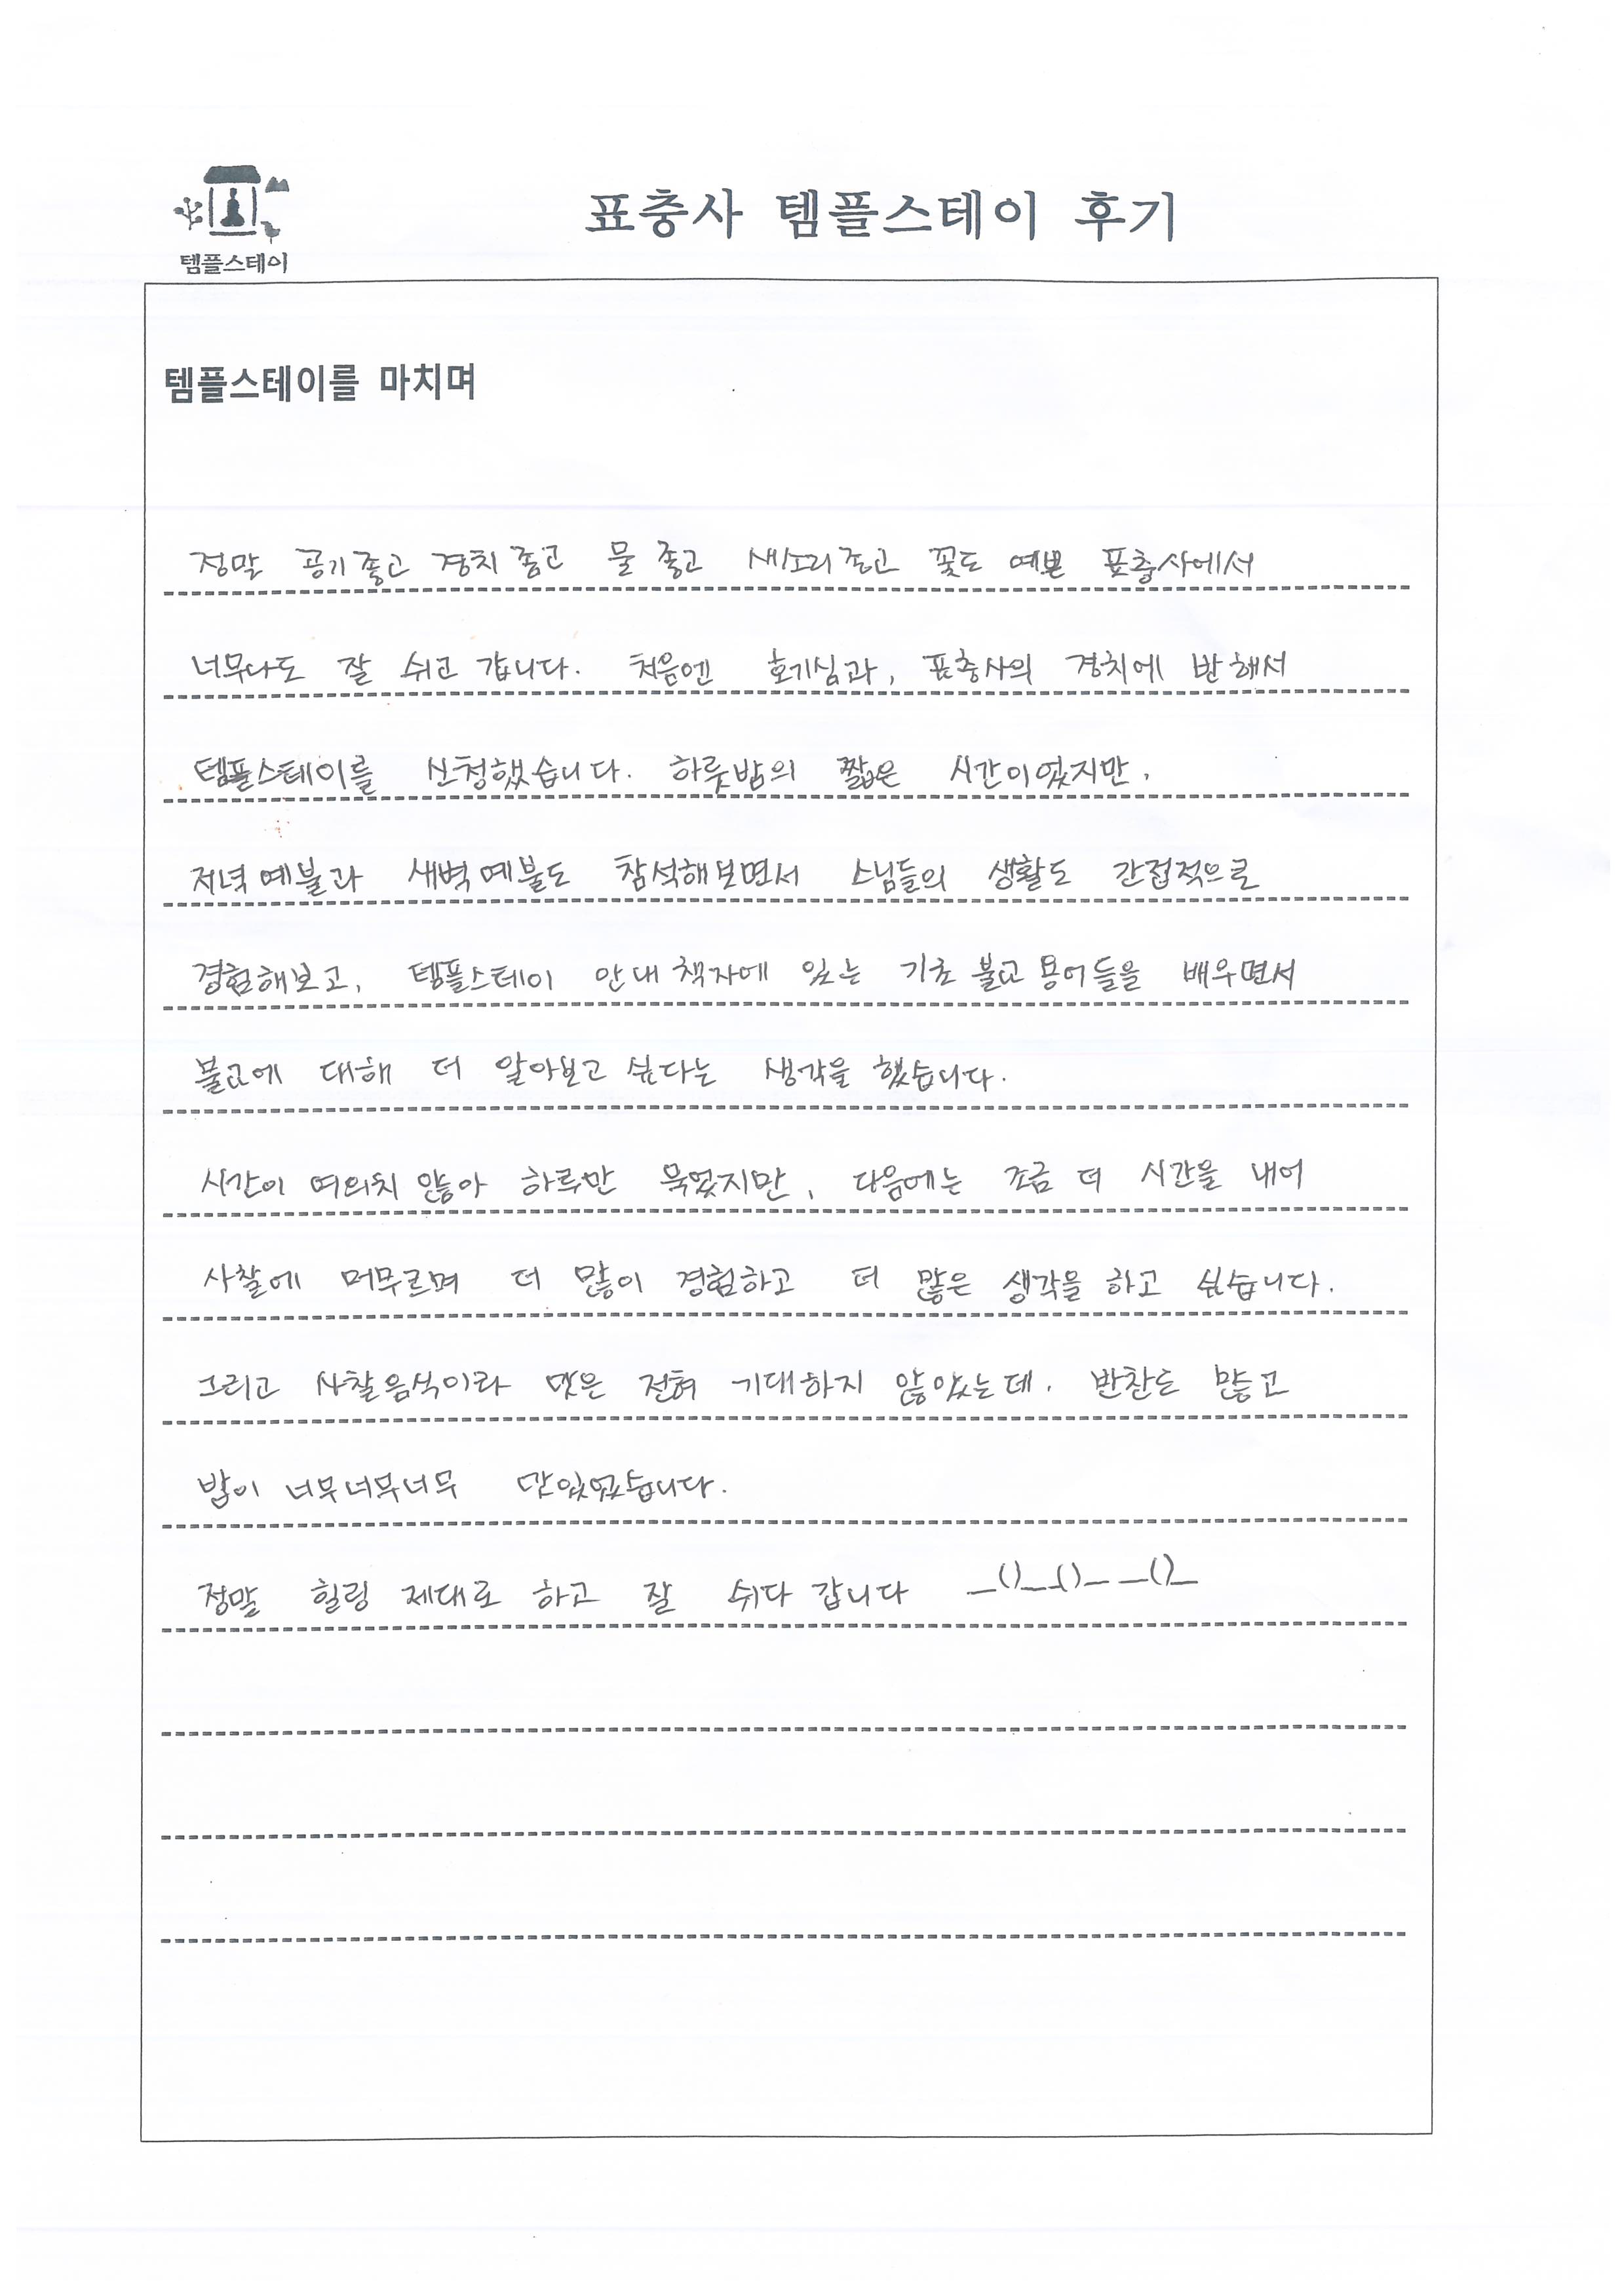 템플스테이
표충사 템플스테이 후기
템플스테이를 마치며
정말 공기좋고 경치좋고 물 좋고 새소리좋고 꽃도 예쁜 표충사에서
너무나도 잘 쉬고 갑니다. 처음엔 호기심과, 표충사의 경치에 반해서
템플스테이를 신청했습니다. 하룻밤의 짧은 시간이였지만,
저녁예불과 새벽예불도 참석해보면서 스님들의 생활도 간접적으로
경험해보고, 템플스테이 안내책자에 있는 기초 불교 용어들을 배우면서
불교에 대해 더 알아보고 싶다는 생각을 했습니다.
시간이 여의치 않아 하루만 묵었지만, 다음에는 조금 더 시간을 내어
사찰에 머무르며 더 많이 경험하고 더 많은 생각을 하고 싶습니다.
그리고 사찰음식이라 맛은 전혀 기대하지 않았는데. 반찬도 많고
밥이 너무너무너무 맛있었습니다.
정말 힐링 제대로 하고 잘 쉬다 갑니다 _()__()_ _()_